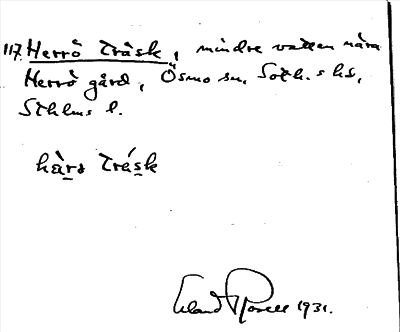 117. Herrö träsk, mindre vatten nära
Herrö gård, Ösmo sn. Soth. s hd,
Sthlms l.
hàrs träsk
1931.